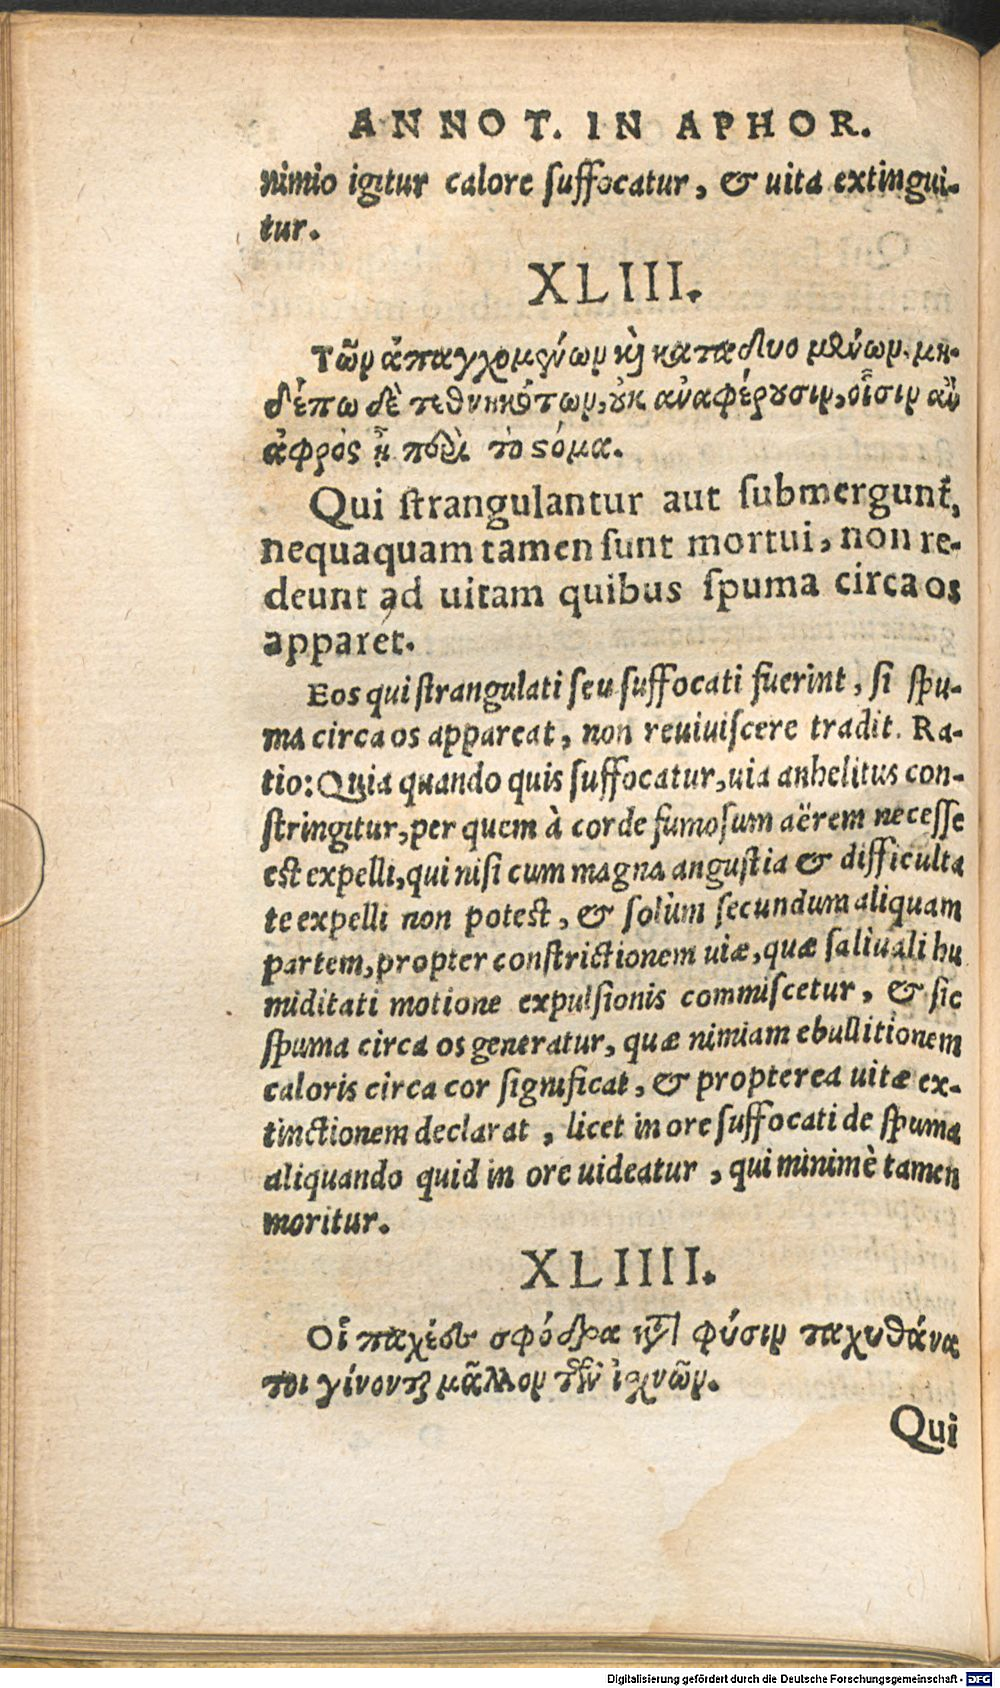 ANNOT. IN APHOR.
nimio igitur calore suffocatur, & uita extingui-
tur.
XLIII.
Τῶν ἀπαγχομένων καὶ καταδυομένων, μη-
δέπω δὲ τεθνηκότων, οὐκ ἀναφέρουσιν, οἷσιν ἂν
ἀφρὸς ᾖ περὶ τὸ στόμα.
Qui strangulantur aut submergunt̃,
nequaquam tamen sunt mortui, non re-
deunt ad uitam quibus spuma circa os
apparet.
Eos qui strangulati seu suffocati fuerint, si spu-
ma circa os appareat, non reuiuiscere tradit. Ra-
tio: Quia quando quis suffocatur, uia anhelitus con-
stringitur, per quem à corde fumosum aërem necesse
est expelli, qui nisi cum magna angustia & difficulta
te expelli non potest, & solùm secundum aliquam
partem, propter constrictionem uiæ, quæ saliuali hu
miditati motione expulsionis commiscetur, & sic
spuma circa os generatur, quæ nimiam ebullitionem
caloris circa cor significat, & propterea uitæ ex-
tinctionem declarat, licet in ore suffocati de spuma
aliquando quid in ore uideatur, qui minimè tamen
moritur.
XLIIII.
Οἱ παχέες σφόδρα κατὰ φύσιν ταχυθάνα
τοι γίνονται μᾶλλον τῶν ἰσχνῶν.
Qui
Digitalisierung gefördert durch die Deutsche Forschungsgemeinschaft - DFG